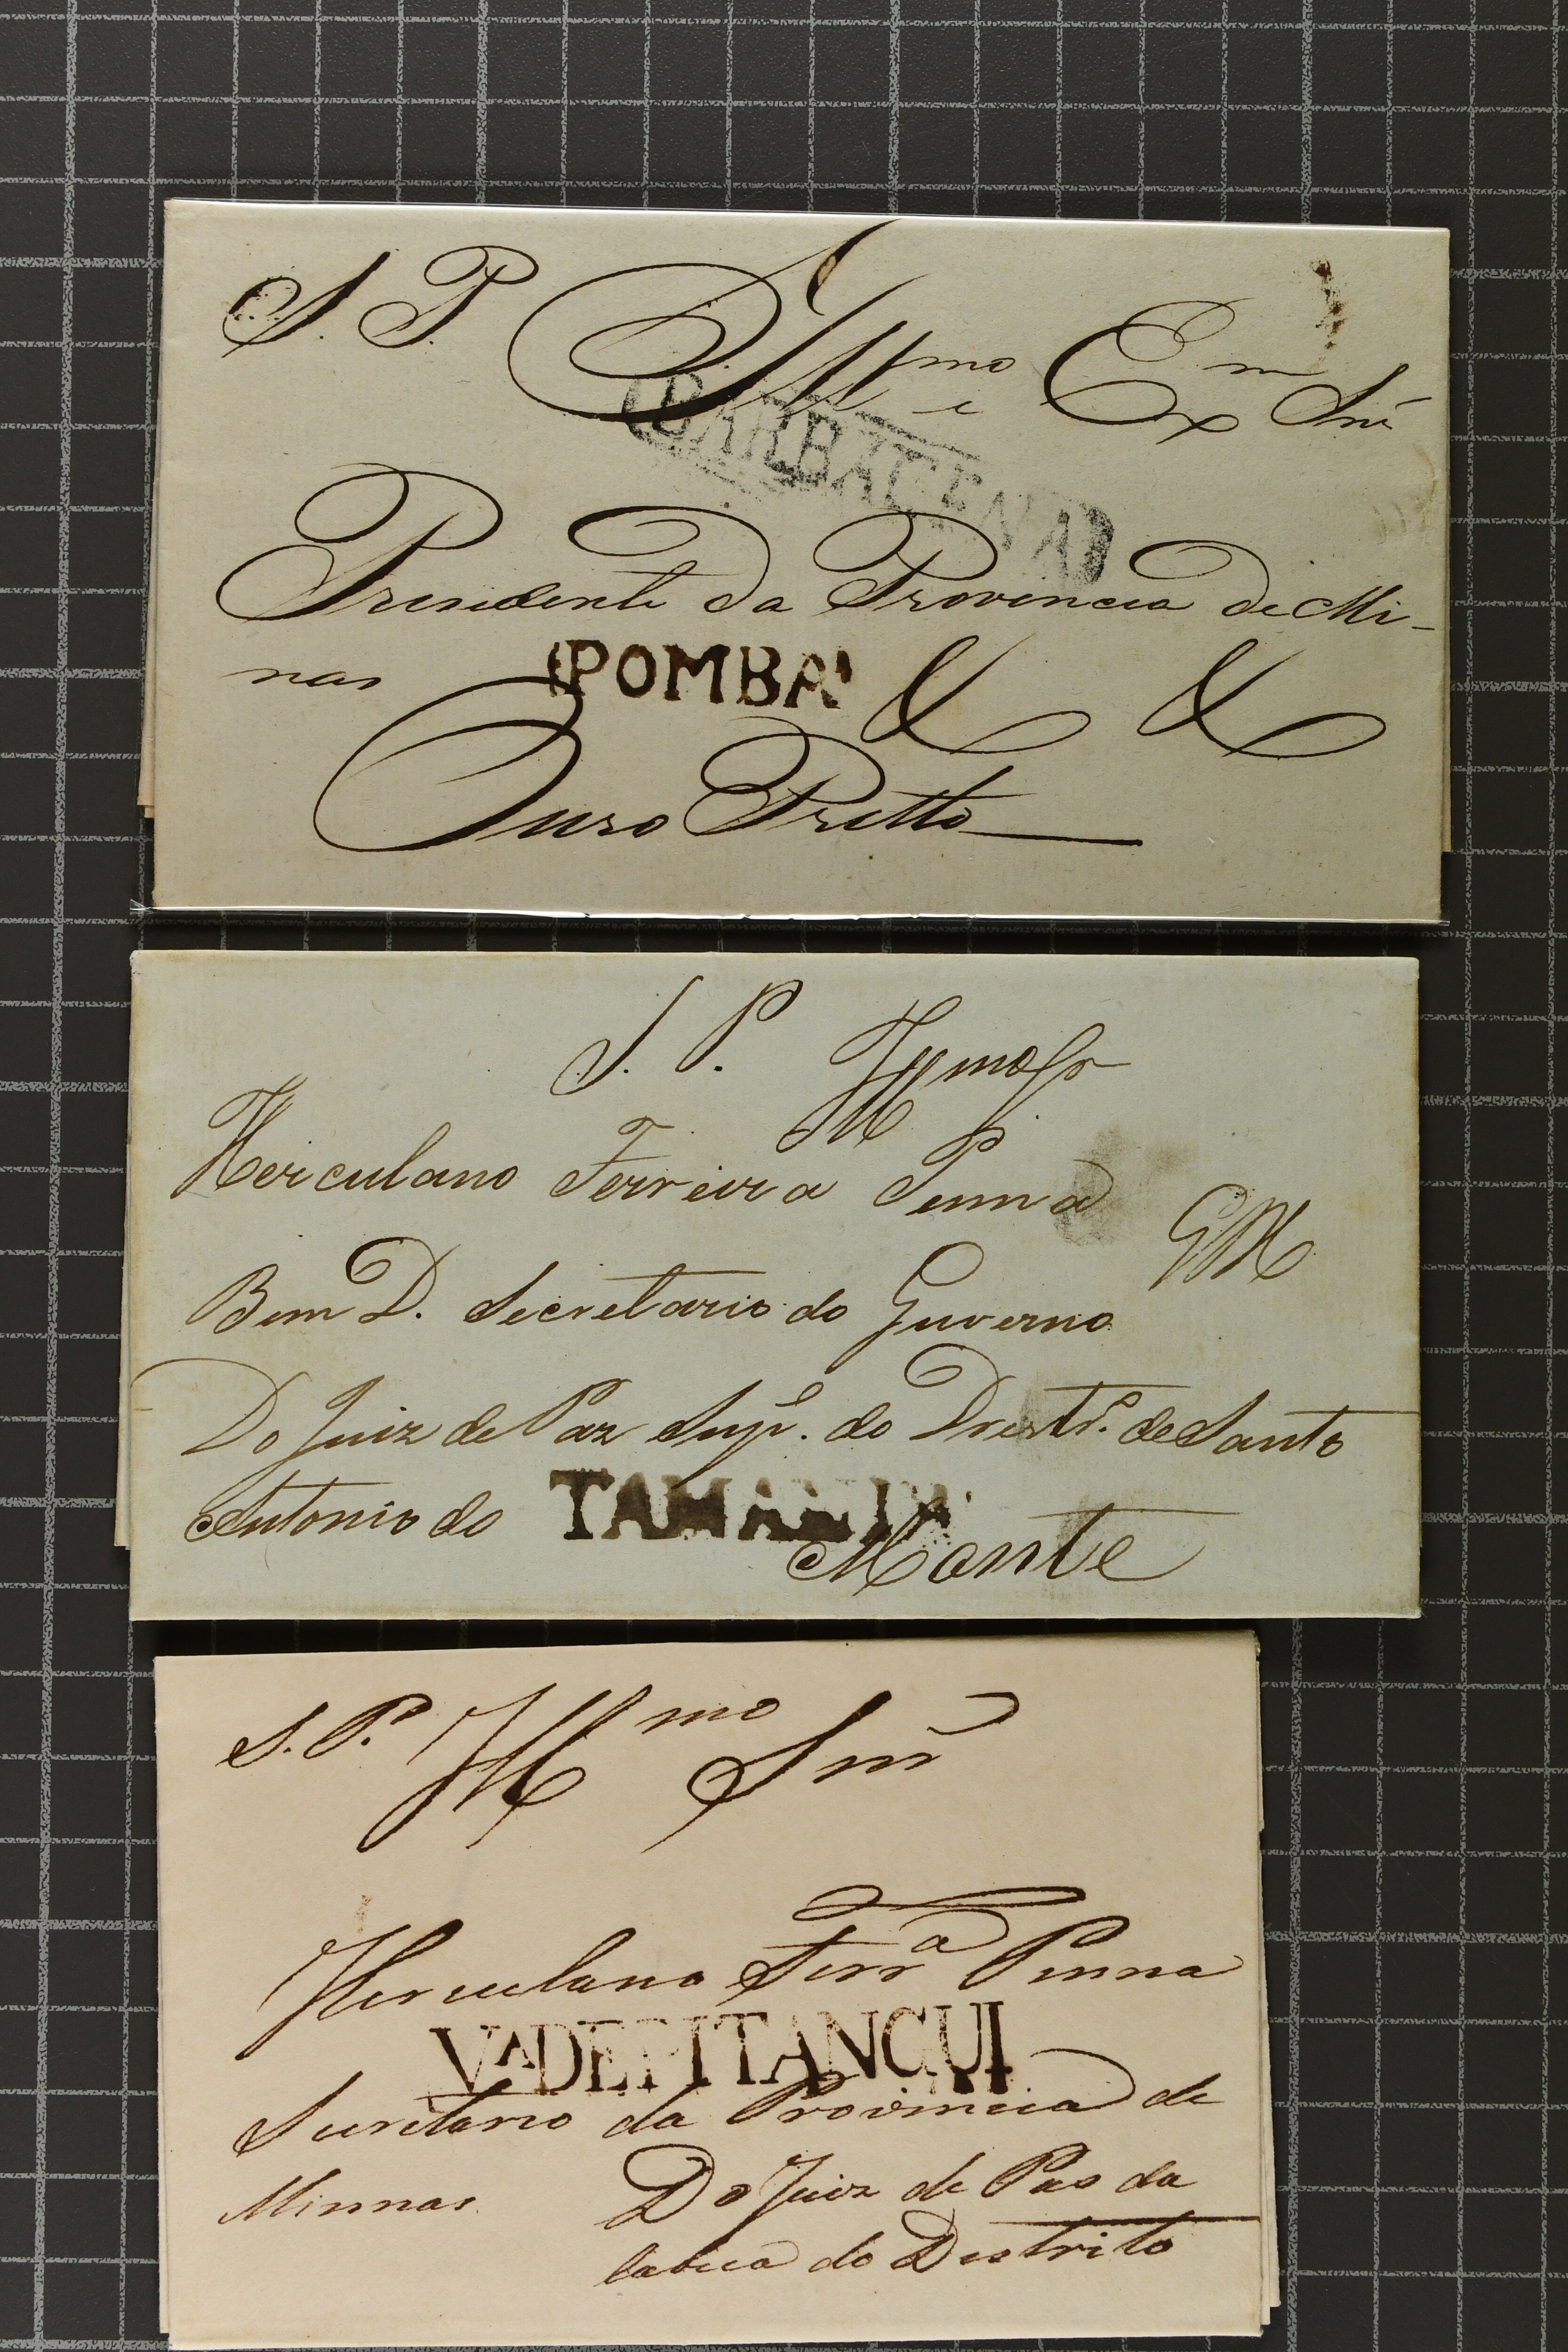 S. P. Illmo e Exm Snr
(BARBACENA)
Presidente da Provincia de Mi-
nas (POMBA) & &
Ouro Pretto
S. P. Illmo Sr
Herculano Ferreira Penna
GM
Bem D. Secretario do Guverno
Do Juiz de Paz Sup. do Drestr.º de Santo
Antonio do
Monte
S. P. Illmo Snr
Herculano Ferra Penna
VA DE PITANGUI
Secretario da Provincia de
Minnas Do Juiz de Pas da
do Destrito